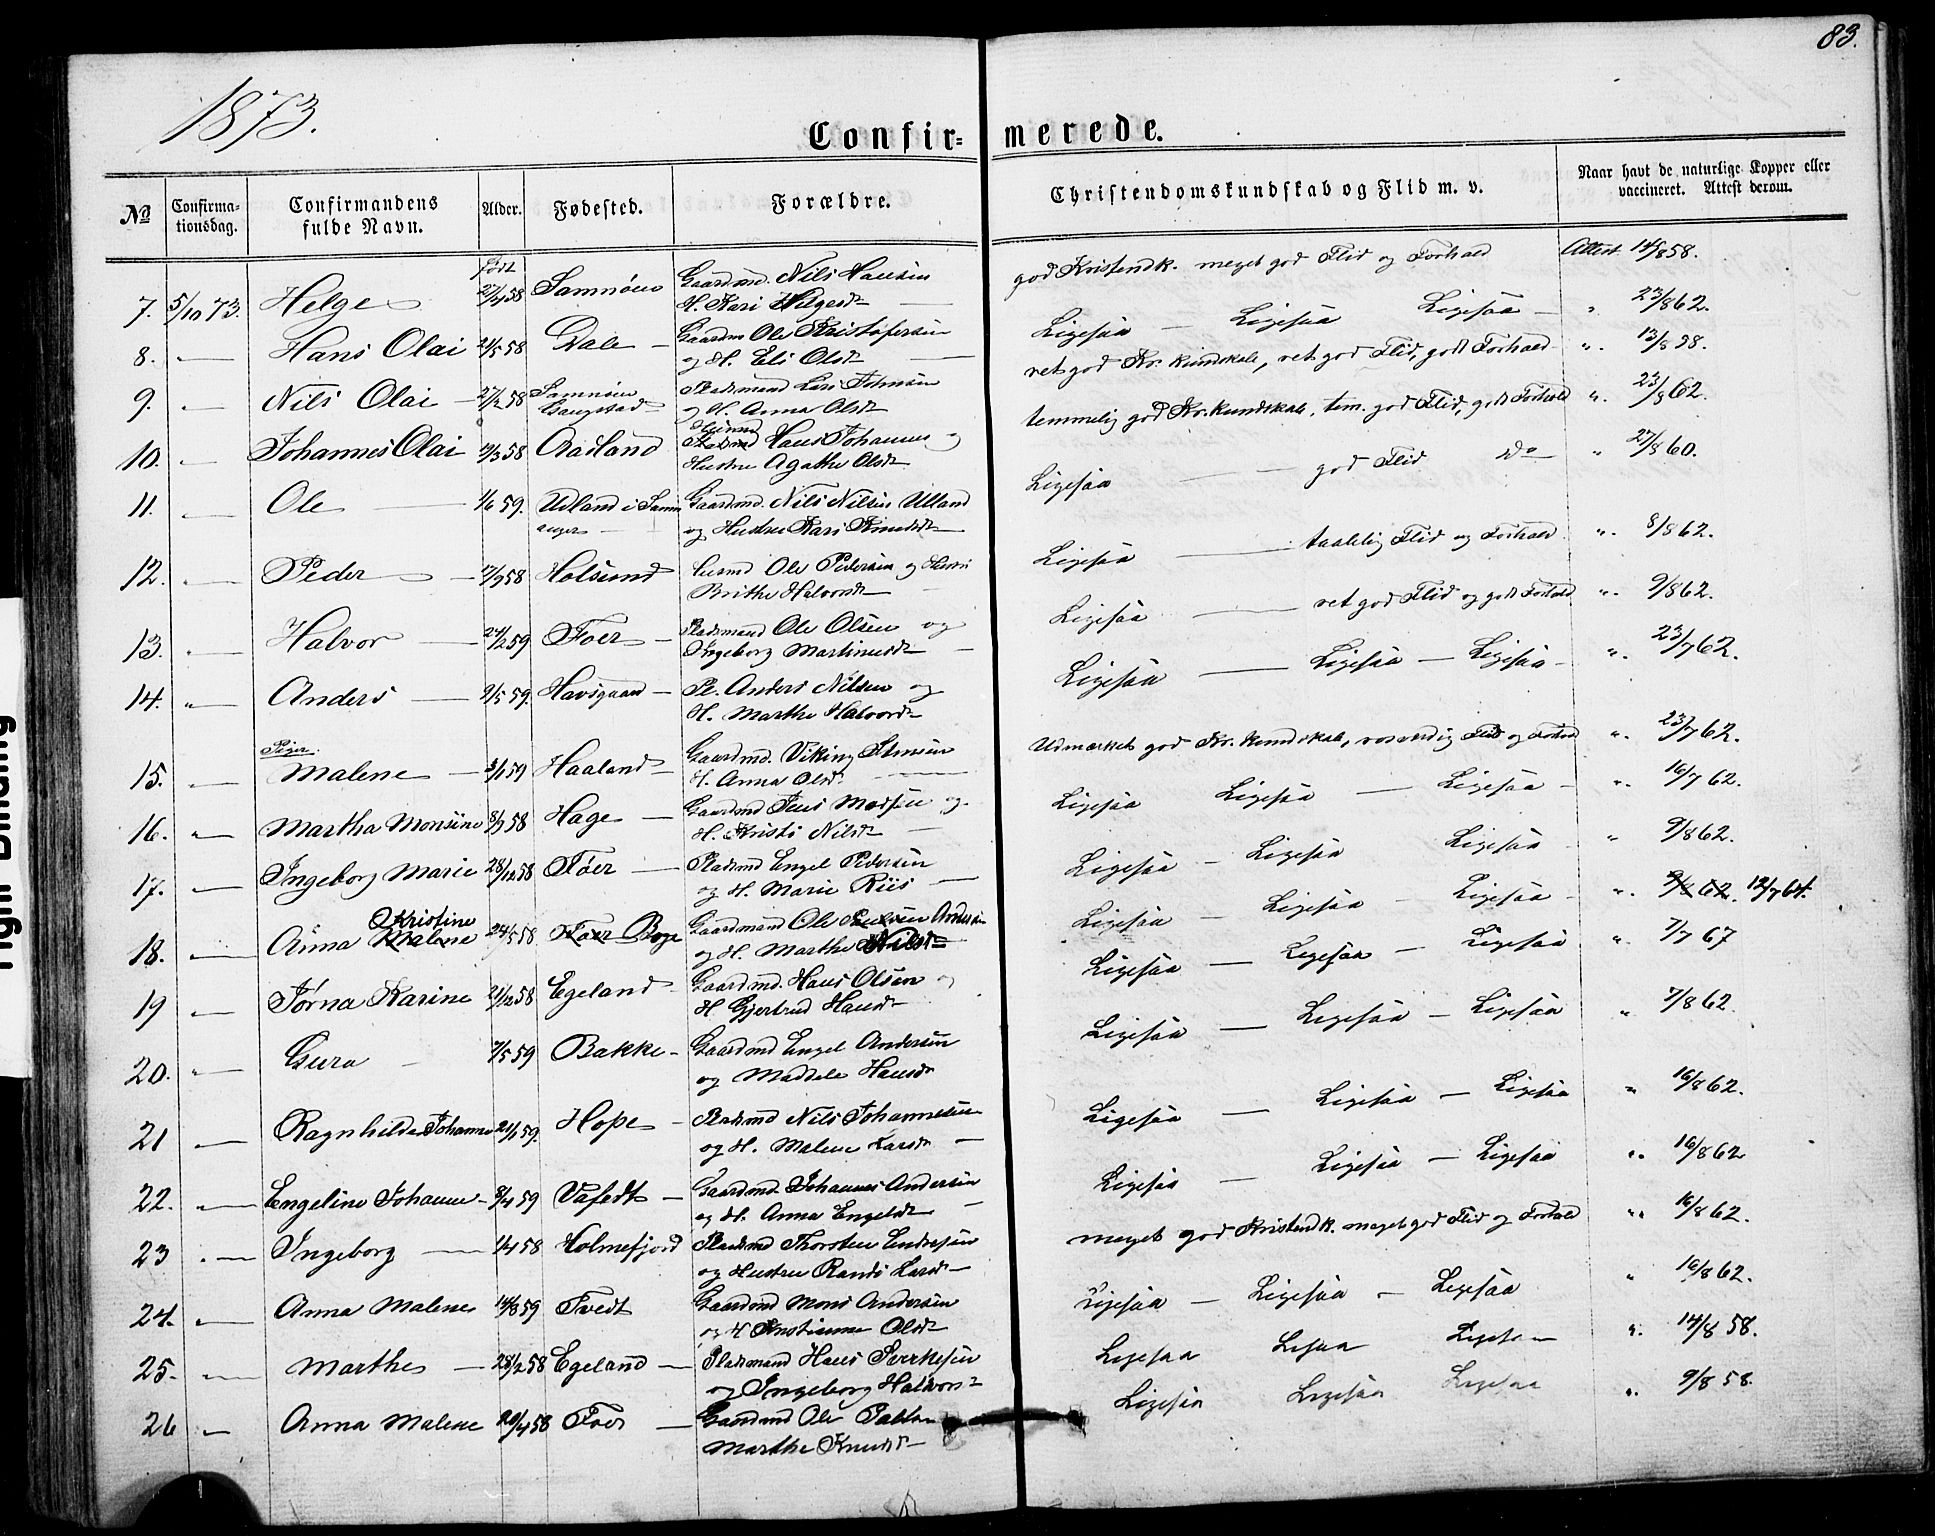 83.
1873.
Confirmerede.
No
Confirmationsdag.
Confirmandens fulde Navn.
Alder.
Fødested.
Forældre.
Christendomskundskab og Flid m. v.
Naar havt de naturlige Kopper eller vaccineret. Attest derom.
7. 5/10 73. Helge født 27/4 58 Samnøen Gaardmd. Nils Hansen H. Kari Helgedr god Kristendk. meget god Flid og Forhold Attest 14/8 58.
8. " Hans Olai 21/5 58 Dale Gaardm Ole Kristofersen og H. Eli Olsdr Ligesaa Ligesaa Ligesaa " 23/8 62.
9. " Nils Olai 27/2 58 Samnøen Gaugstad Pladsmand Lars Johnsen og H. Anna Olsdr ret god Kr. kundskab, ret god Flid, godt Forhold " 13/8 58.
10. " Johannes Olai 19/3 58 Aadland Hans Johannes og Hustru Agathe Olsdr temmelig god Kr. kundskab, tem. god Flid, godt Forhold " 23/8 62.
11. " Ole 1/6 59. Udland i Samnanger Gaardmd. Nils Nilsen Ulland og Hustru Kari Knudsdr Ligesaa god Flid Do " 27/8 60.
12. " Peder 17/9 58 Holsund Husmd Ole Pedersen og Hustru Brithe Halvorsdr Ligesaa taalelig Flid og Forhold " 8/8 62.
13. " Halvor 24/2 59 Føer Pladsmand Ole Olsen og Ingeborg Martinusdr Ligesaa ret god Flid og godt Forhold " 9/8 62.
14. " Anders 9/5 59. Havsgaard Pl. Anders Nilsen og H. Marthe Halvordr Ligesaa Ligesaa Ligesaa " 23/7 62.
Piger.
15. " Malene 3/1 59 Haaland Gaardmd. Viking Johnsen H. Anna Olsdr Udmærket god Kr. kundskab, rosværdig Flid og Forhold " 23/7 62.
16. " Martha Monsine 8/9 58 Hage Gaardmd Jens Madsen og H. Kristi Nilsdr Ligesaa Ligesaa Ligesaa " 16/7 62.
17. " Ingeborg Marie 28/12 58 Føer Pladsmd Engel Pedersen og H. Marie Riis Ligesaa Ligesaa Ligesaa " 9/8 62.
18. " Anna Malene Kristine 24/5 58 Føer Boge Gaardmand Ole Andersen og H. Marthe Nilsdr Ligesaa Ligesaa Ligesaa " 9/8 62. 12/7 64.
19 " Jørna Karine 21/12 58 Egeland Gaardmd. Hans Olsen og H Gjertrud Hansdr Ligesaa Ligesaa Ligesaa " 7/7 67
20. " Gura 7/5 59 Bakke Gaardmd Engel Andersen og Maddele Hansdr Ligesaa Ligesaa Ligesaa " 7/8 62.
21 " Ragnhilde Johanne 21/1 59. Hope Pladsmd Nils Johannesen og H. Malene Larsdr Ligesaa Ligesaa Ligesaa " 16/8 62.
22. " Engeline Johanne 8/4 59 Vafedt Gaardmd. Johannes Andersen og H. Anna Engeldr Ligesaa Ligesaa Ligesaa " 16/8 62
23 " Ingeborg 1/4 58 Holmefjord Pladsmd Thorsten Endresen og Hustru Randi Larsdr meget god Kristendk. meget god Flid og Forhold " 16/8 62.
24. " Anna Malene 14/8 59 Tvedt Gaardmd Mons Andersen og H Kristianne Olsdr Ligesaa Ligesaa Ligesaa " 16/8 62.
25. " Marthe 28/2 58 Egeland Pladsmand Hans Sverkesen og Ingeborg Halvorsdr Ligesaa Ligesaa Ligesaa " 14/8 58.
26 " Anna Malene 20/4 58 Føer Gaardmd Ole Marthe Knudsdr Ligesaa Ligesaa Ligesaa " 9/8 58.
Tight Binding